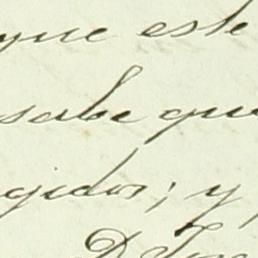 que este
sabe que
gidos; y